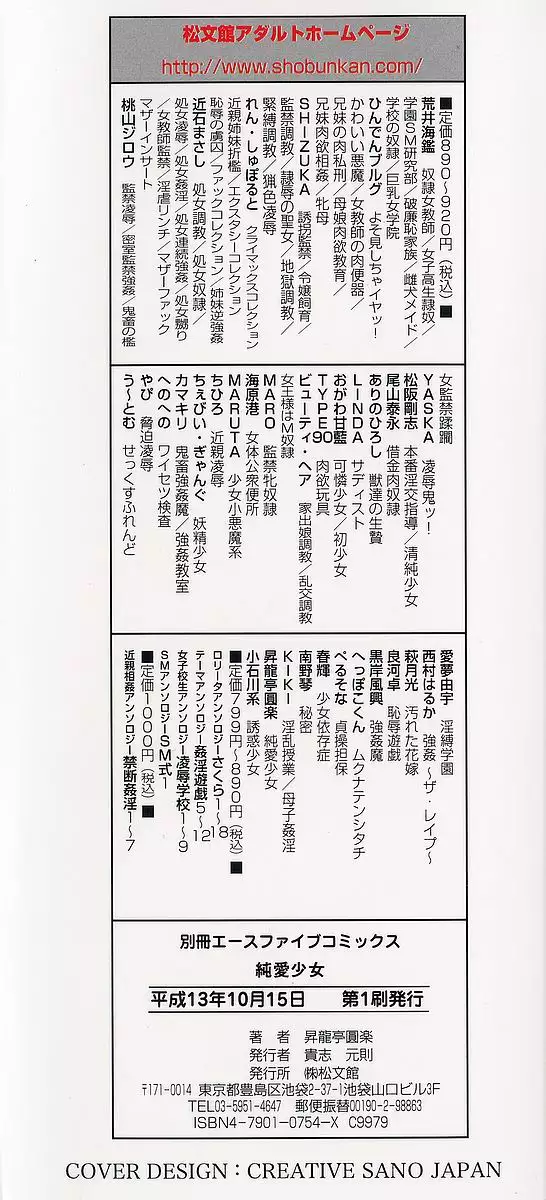 松文館アダルトホームページ
http://www.shobunkan.com/
■定価890〜920円(税込)■
荒井海鑑 奴隷女教師/女子高生隷奴/
学園SM研究部/破廉恥家族/雌犬メイド/
学校の奴隷/巨乳女学院
ひんでんブルグ よそ見しちゃイヤッ!
かわいい悪魔/女教師の肉便器/
兄妹の肉私刑/母娘肉欲教育/
兄妹肉欲相姦/牝母
SHIZUKA 誘拐監禁/令嬢飼育/
監禁調教/隷辱の聖女/地獄調教/
緊縛調教/猟色凌辱
れん・しゅぽると クライマックスコレクション
近親姉妹折檻/エクスタシーコレクション
恥辱の虜囚/ファックコレクション/姉妹逆強姦
近石まさし 処女調教/処女奴隷/
処女凌辱/処女姦淫/処女連続強姦/処女嬲り
/女教師監禁/淫虐リンチ/マザーファック
マザーインサート
桃山ジロウ 監禁凌辱/密室監禁強姦/鬼畜の檻
女監禁蹂躙
YASKA 凌辱鬼ッ!
松阪剛志 本番淫交指導/清純少女
尾山泰永 借金肉奴隷
ありのひろし 獣達の生贄
LINDA サディスト
おがわ甘藍 可憐少女/初少女
TYPE90 肉欲玩具
ビューティ・ヘア 家出娘調教/乱交調教
女王様はM奴隷
MARO 監禁牝奴隷
海原港 女体公衆便所
MARUTA 少女小悪魔系
ちひろ 近親凌辱
ちぇびい・ぎゃんぐ 妖精少女
カマキリ 鬼畜強姦魔/強姦教室
へのへの ワイセツ検査
やぴ 脅迫凌辱
う〜とむ せっくすふれんど
愛夢由宇 淫縛学園
西村はるか 強姦〜ザ・レイプ〜
萩月光 汚れた花嫁
良河卓 恥辱遊戯
黒岸風興 強姦魔
へっぽこくん ムクナテンシタチ
ぺるそな 貞操担保
春輝 少女依存症
南野琴 秘密
KIKI 淫乱授業/母子姦淫
昇龍亭圓楽 純愛少女
小石川系 誘惑少女
■定価799円〜890円(税込)■
ロリータアンソロジーさくら1〜18
テーマアンソロジー姦淫遊戯5〜12
女子校生アンソロジー凌辱学校1〜9
SMアンソロジーSM式1
■定価1000円(税込)■
近親相姦アンソロジー禁断姦淫1〜7
別冊エースファイブコミックス
純愛少女
平成13年10月15日 第1刷発行
著 者 昇龍亭圓楽
発行者 貴志 元則
発行所 ㈱松文館
〒171-0014 東京都豊島区池袋2-37-1池袋山口ビル3F
TEL03-5951-4647 郵便振替00190-2-98863
ISBN4-7901-0754-X C9979
COVER DESIGN : CREATIVE SANO JAPAN